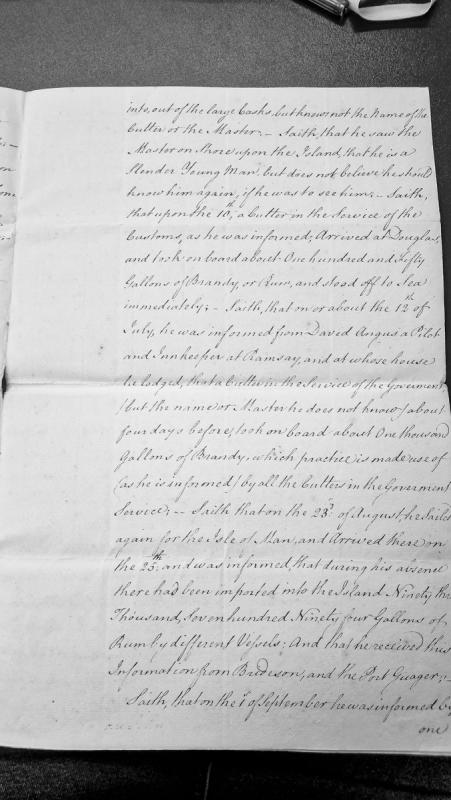 into, out of the large Casks, but knows not the Name of the
Cutter or the Master;– Saith, that he saw the
Master on Shore upon the Island, that he is a
Slender Young Man, but does not believe he should
know him again, if he was to see him;– Saith,
that upon the 10th, a Cutter in the Service of the
Customs, as he was informed, Arrived at Douglas,
and took on board about One hundred and Fifty
Gallons of Brandy, or Rum, and stood off to Sea
immediately;– Saith, that on or about the 12th of
July, he was informed from David Angus a Pilot
and Innkeeper at Ramsay, and at whose house
he lodged, that a Cutter in the Service of the Goverment
(but the name or Master he does not know) about
four days before, took on board about One thousand
Gallons of Brandy, which practice is made use of
(as he is informed) by all the Cutters in the Goverment
Service;– Saith that on the 23d: of August, he Sailed
again for the Isle of Man, and Arrived there on
the 25th: and was informed, that during his absence
there had been imported into the Island Ninety thr
Thousand, Seven hundred Ninety four Gallons of
Rum by different Vessels; And that he received this
Information from and the Port Guager;–
Saith, that on the 1st of September he was informed by
one